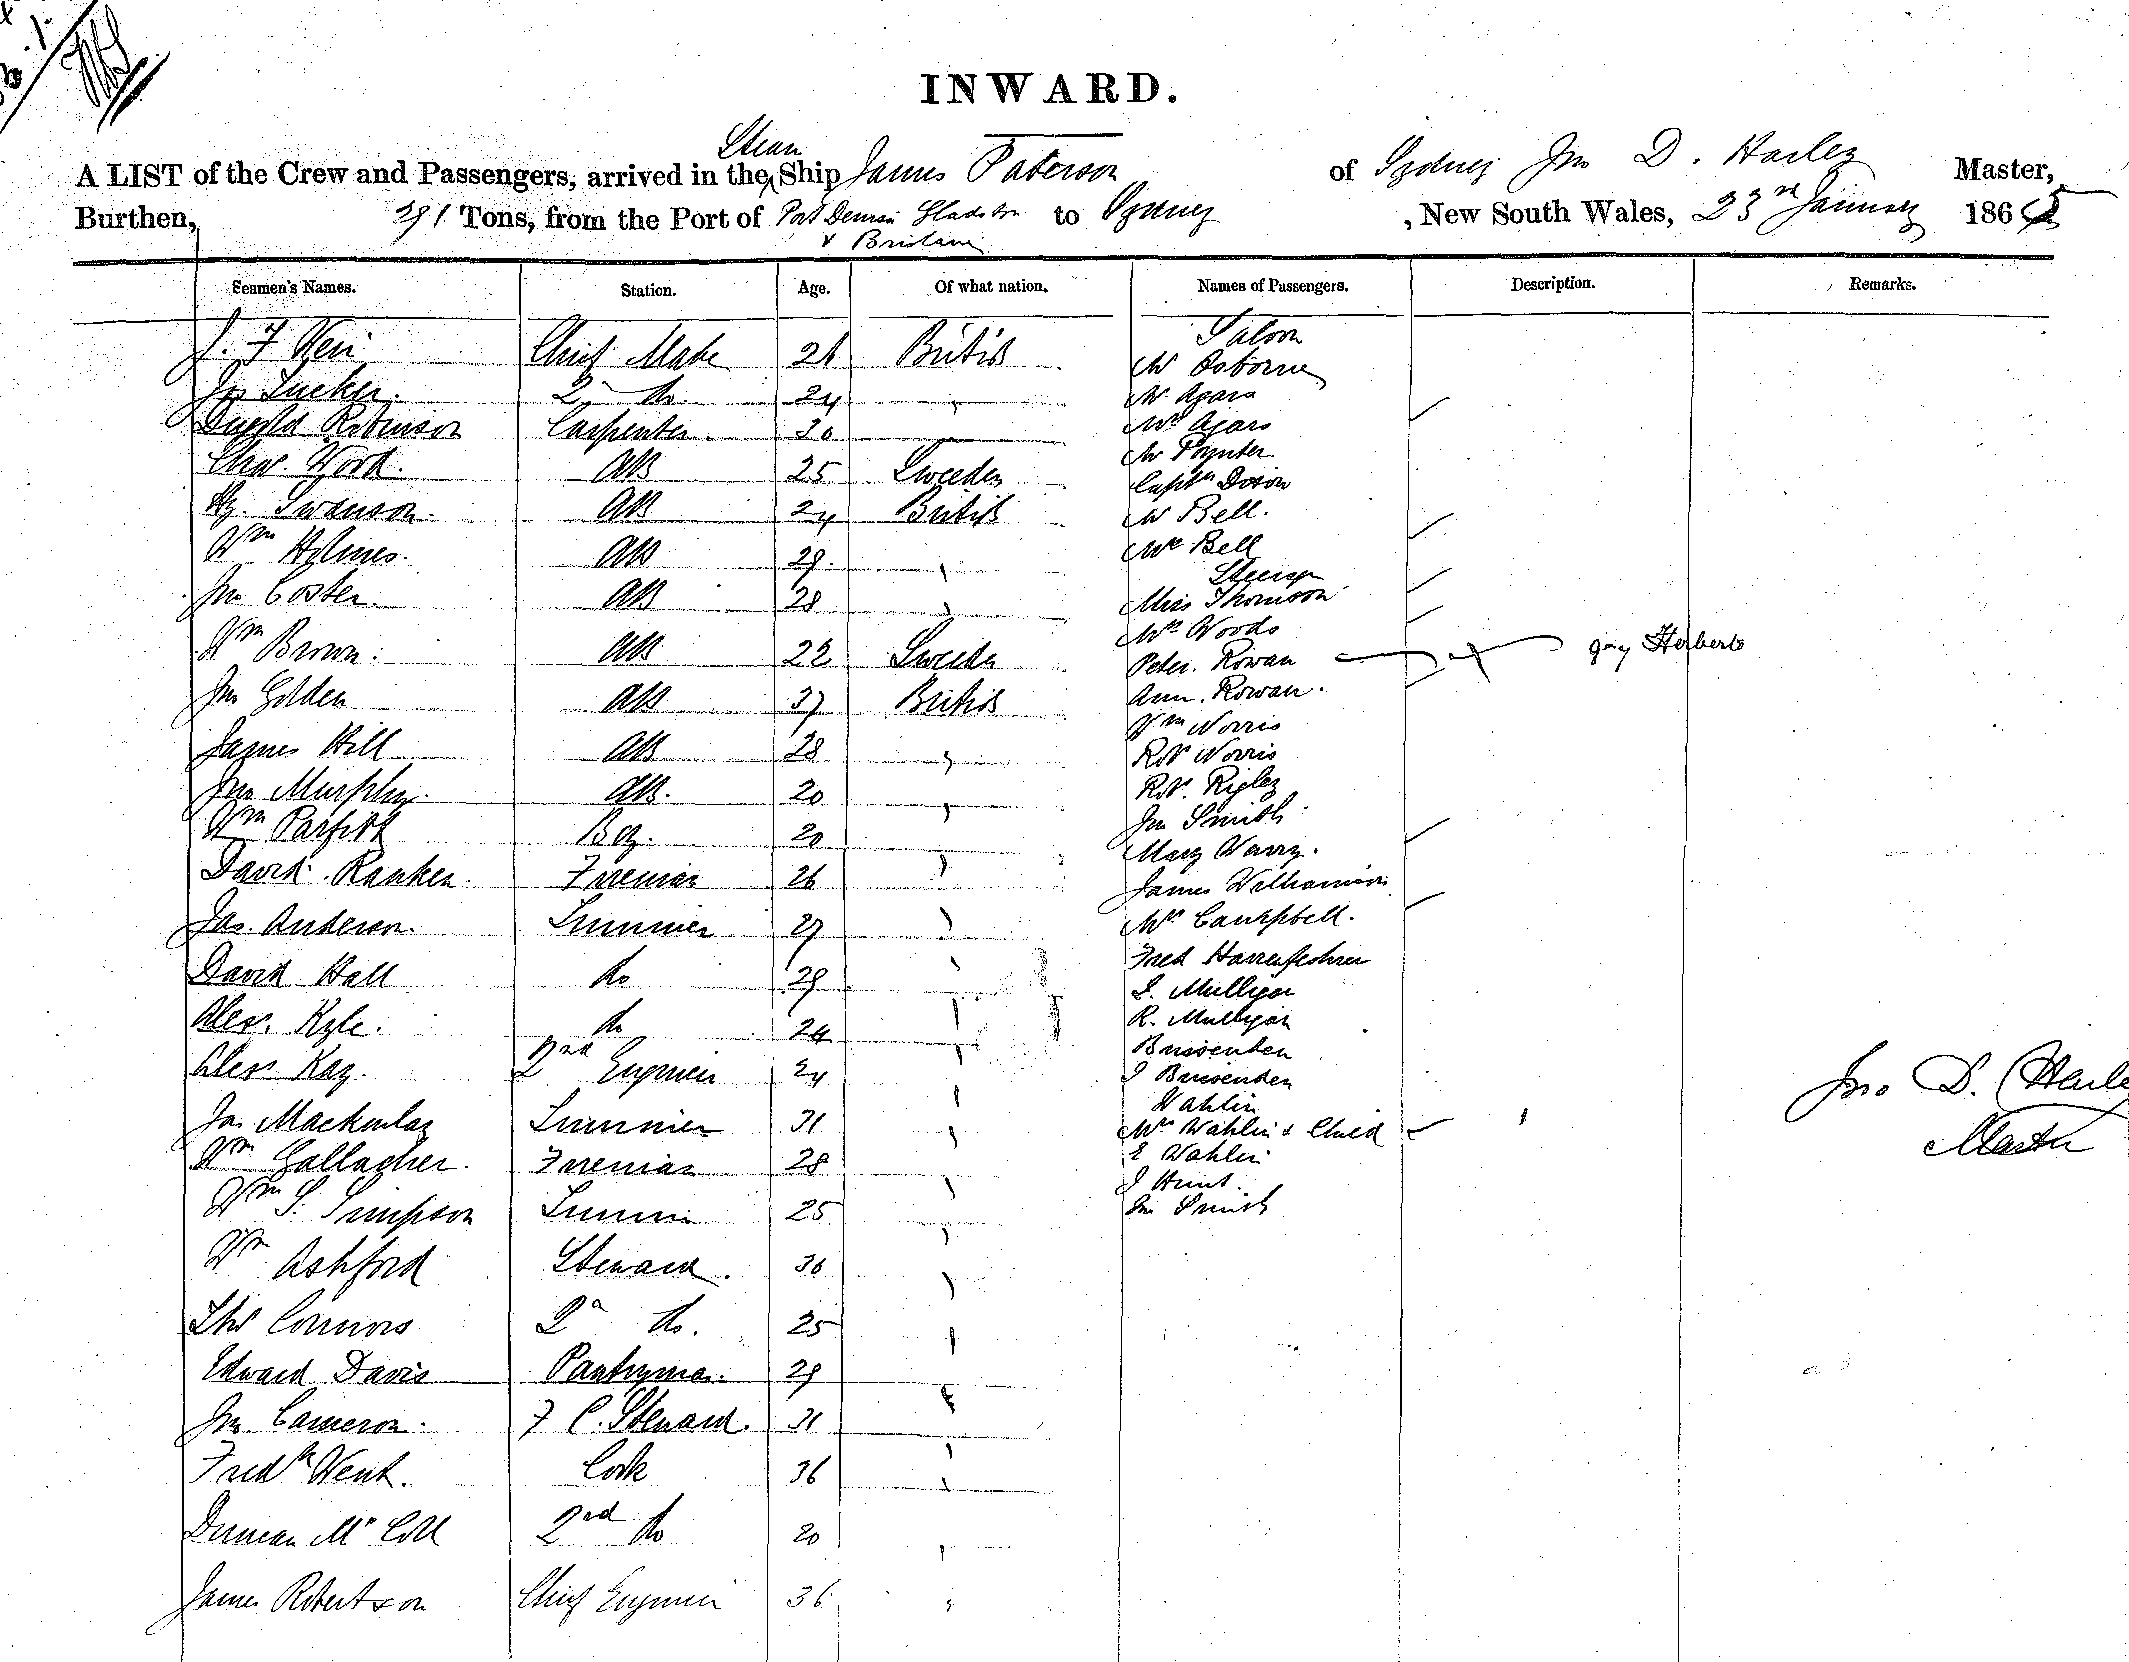 INWARD.
A LIST of the Crew and Passengers, arrived in the Steam Ship James Paterson of Sydney Jno D. Harley Master,
Burthen, 291 Tons, from the Port of Port Denison Gladstone & Brisbane to Sydney , New South Wales, 23rd January 1865
Seamen's Names. Station. Age. Of what nation. Names of Passengers. Description. Remarks.
Saloon
J. F Chief Mate 26 British Mr Osborne
Jas Tucker. 2nd do 24 " Mr Agars
Dugald Robinson Carpenter. 30 Mrs Agars
Mr Poynter
Chas. AB 25 Sweden Captn
Hy. Swanson. AB 24 British Mr Bell.
Wm Holmes. AB 29. " Mrs Bell
Steerage
Jno Coster. AB 28 " Miss Thomson
Mrs Woods
Wm Brown. AB 22 Sweden Peter. Rowan Herberts
Jno Golden AB 37 British Ann. Rowan.
Wm Norris
James Hill AB 28 " Robt Norris
Jno Murphy. AB. 20 " Robt. Rigley
Jno Smith
Wm Parfitt Boy. 20 " Mary
David. Ranken. Fireman 26 " James Williamson
Jas. Anderson. Trimmer 27 " Mrs Campbell.
Fred
David Hall do 29 " Mulligan
Alex. Kyle. do 24 " R. Mulligan
Brissenden
Alex Kay. 2nd Engineer 24 " J Brissenden
Wahlin
Jas Mackinlay Trimmer 31 " Mrs Wahlin & Child
Wm Gallagher. Fireman 28 " E Wahlin
J Hunt.
Wm S. Simpson Trimmer 25 " Jno Smith
Wm Ashford Steward. 36 "
Thos Connors 2d do. 25 "
Edward Davis Pantryman. 29 "
Jno Cameron. F C. Steward. 31 "
Fredk Went. Cook 36 "
Duncan Mc Coll 2nd do 20 "
James Robertson Chief Engineer 36 "
Jno D. Harley
Master